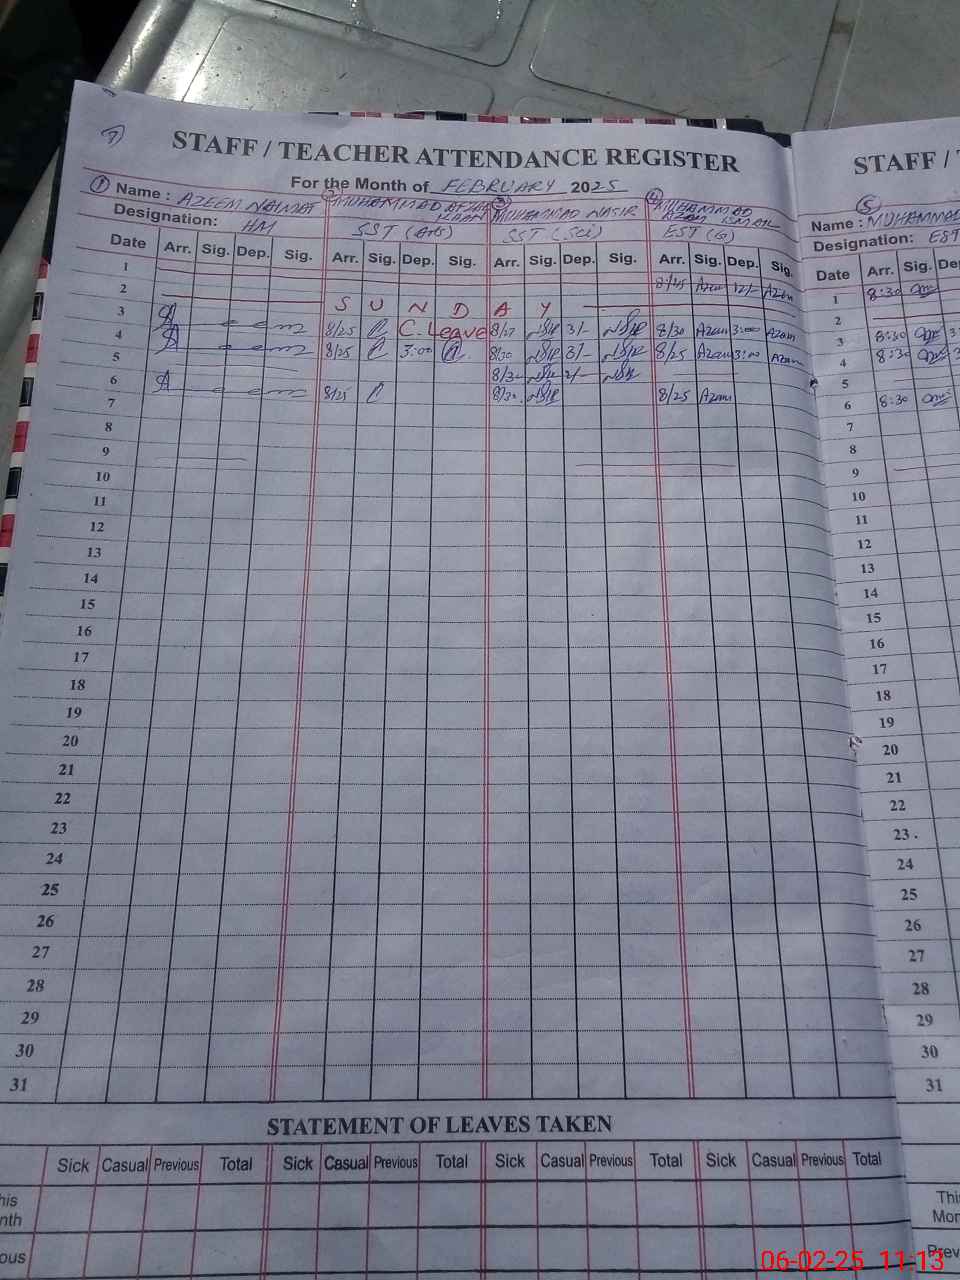 7)
STAFF / TEACHER ATTENDANCE REGISTER
For the Month of FEBRUARY 2025
① Name : AZEEM NAIMAT ② MUHAMMAD AFZAL KHAN ③ MUHAMMAD NASIR ④ MUHAMMAD AZAM
Designation: HM SST (Arts) SST (Sci) EST (G)
Date Arr. Sig. Dep. Sig. Arr. Sig. Dep. Sig. Arr. Sig. Dep. Sig. Arr. Sig. Dep. Sig.
1 8/45 Azam 12/- Azam
2 S U N D A Y
3 8/25 C. Leave 8/27 3/- 8/30 Azam 3:00 Azam
4 8/25 3:00 8/30 3/- 8/25 Azam 3:00 Azam
5 8/30
6 8/25 8/30 8/25 Azam
7
8
9
10
11
12
13
14
15
16
17
18
19
20
21
22
23
24
25
26
27
28
29
30
31
STATEMENT OF LEAVES TAKEN
Sick Casual Previous Total Sick Casual Previous Total Sick Casual Previous Total Sick Casual Previous Total
his
nth
ous
STAFF / T
⑤
Name : MUHAMMAD
Designation: EST
Date Arr. Sig. De
1 8:30
2
3 8:30
4 8:30
5
6 8:30
7
8
9
10
11
12
13
14
15
16
17
18
19
20
21
22
23
24
25
26
27
28
29
30
31
Thi
Mor
Prev
06-02-25 11-13